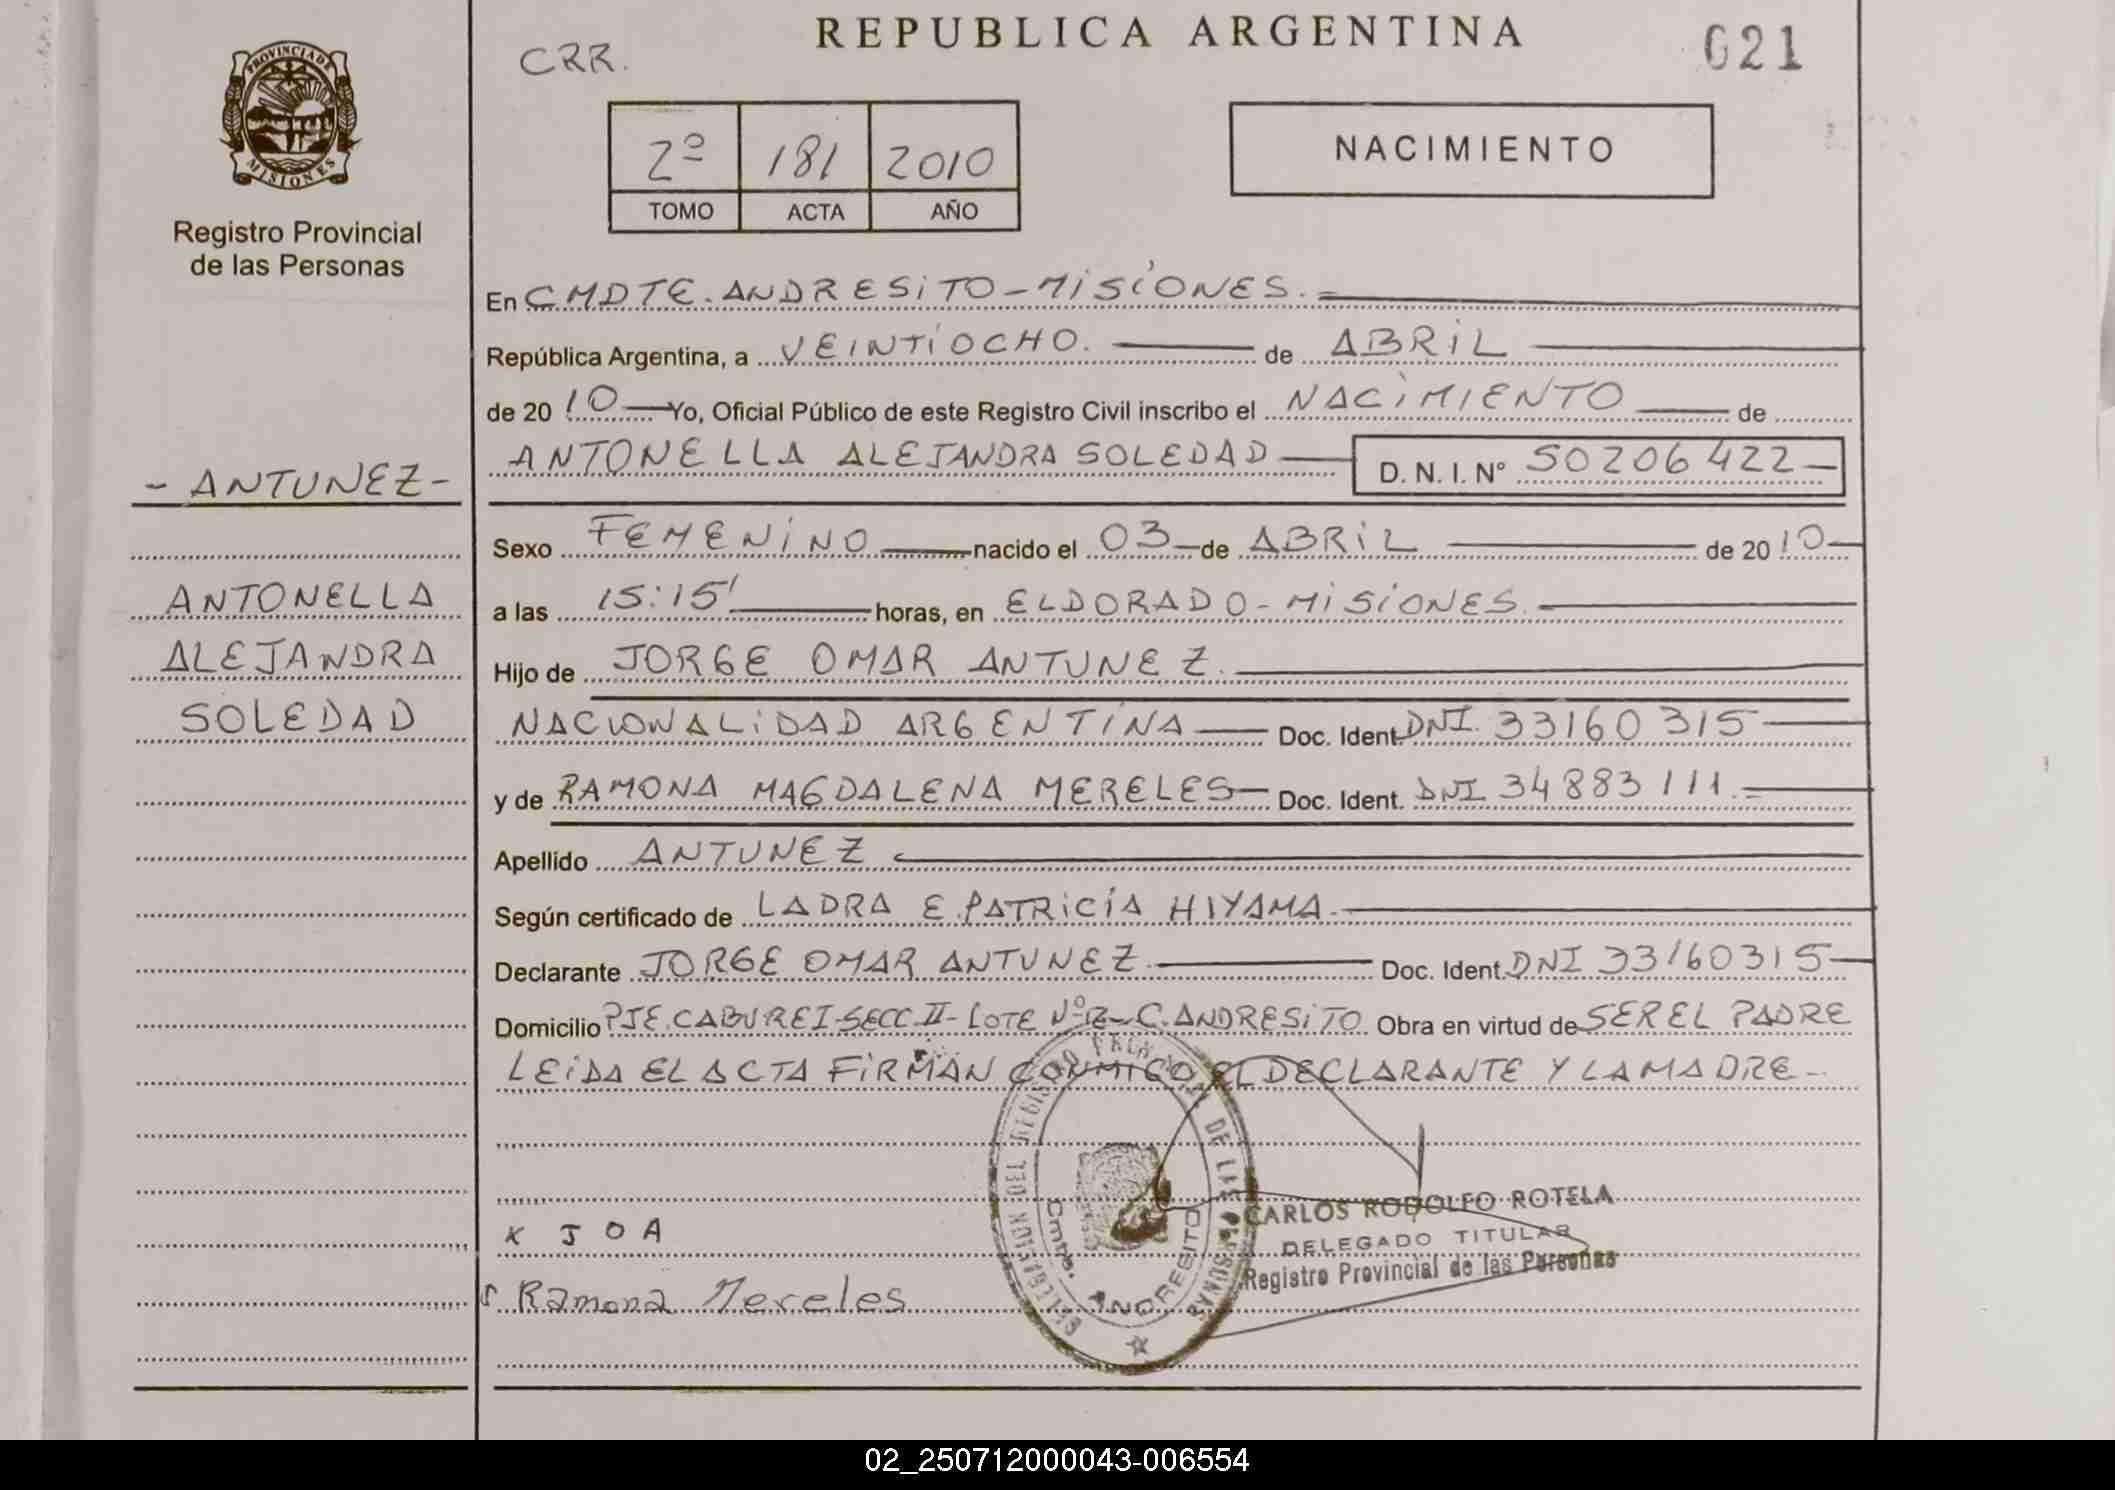 REPUBLICA ARGENTINA
CRR.
021
PROVINCIA DE
MISIONES
Registro Provincial
de las Personas
2º 181 2010
TOMO ACTA AÑO
NACIMIENTO
En CMDTE. ANDRESITO - MISIONES.
República Argentina, a VEINTIOCHO. de ABRIL
de 2010 Yo, Oficial Público de este Registro Civil inscribo el NACIMIENTO de
ANTONELLA ALEJANDRA SOLEDAD D. N. I. Nº 50206422
- ANTUNEZ -
Sexo FEMENINO nacido el 03 de ABRIL de 2010
ANTONELLA
a las 15:15' horas, en ELDORADO - MISIONES.
ALEJANDRA
Hijo de JORGE OMAR ANTUNEZ.
SOLEDAD
NACIONALIDAD ARGENTINA Doc. Ident. DNI. 33160315
y de RAMONA MAGDALENA MERELES Doc. Ident. DNI 34883111.
Apellido ANTUNEZ
Según certificado de LADRA E. PATRICIA HIYAMA.
Declarante JORGE OMAR ANTUNEZ. Doc. Ident. DNI 33160315
Domicilio PJE. CABUREI-SECC II - LOTE Nº C. ANDRESITO. Obra en virtud de SER EL PADRE
LEIDA EL ACTA FIRMAN CONMIGO EL DECLARANTE Y LA MADRE -
DELEGACION DEL REGISTRO PROVINCIAL DE LAS PERSONAS
Cmte. ANDRESITO
CARLOS RODOLFO ROTELA
DELEGADO TITULAR
Registro Provincial de las Personas
x J O A
Ramona Mereles
02_250712000043-006554